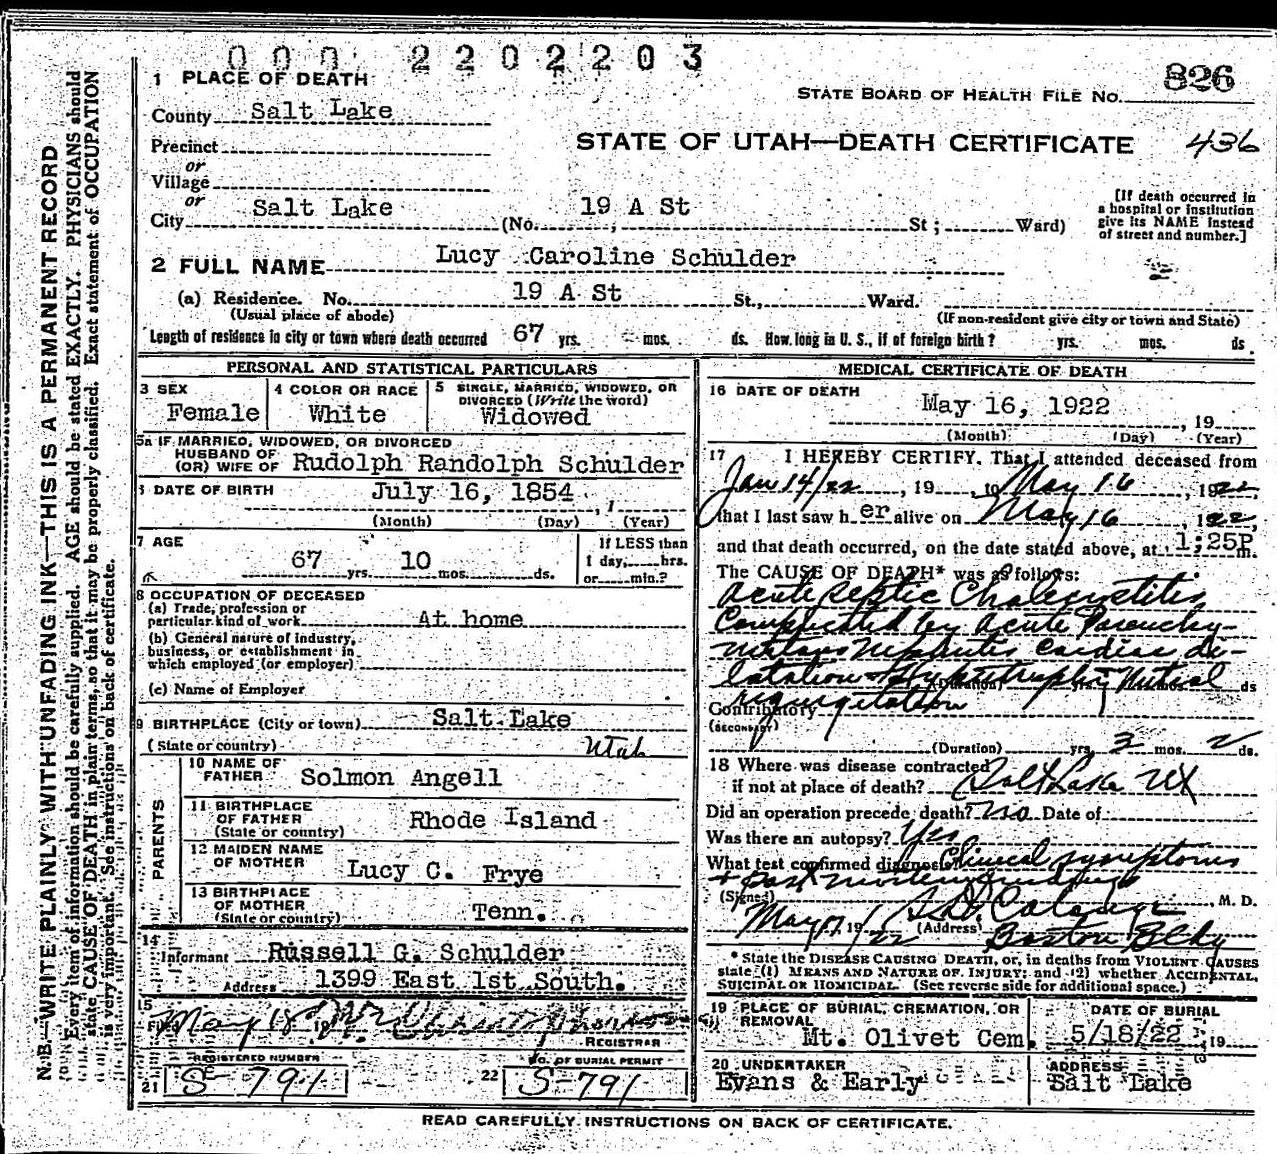 000 2202203
1 PLACE OF DEATH
826
STATE BOARD OF HEALTH FILE NO.
County Salt Lake
STATE OF UTAH—DEATH CERTIFICATE 436
Precinct
or
Village
or
City Salt Lake (No. 19 A St St; Ward)
[If death occurred in
a hospital or institution
give its NAME instead
of street and number.]
2 FULL NAME Lucy Caroline Schulder
(a) Residence. No. 19 A St St., Ward.
(Usual place of abode) (If non-resident give city or town and State)
Length of residence in city or town where death occurred 67 yrs. mos. ds. How long in U. S., if of foreign birth? yrs. mos. ds
PERSONAL AND STATISTICAL PARTICULARS
3 SEX
Female
4 COLOR OR RACE
White
5 SINGLE, MARRIED, WIDOWED, OR
DIVORCED (Write the word)
Widowed
5a IF MARRIED, WIDOWED, OR DIVORCED
HUSBAND OF
(OR) WIFE OF Rudolph Randolph Schulder
DATE OF BIRTH July 16, 1854 , 1
(Month) (Day) (Year)
7 AGE
67 yrs. 10 mos. ds.
If LESS than
1 day, hrs.
or min.?
8 OCCUPATION OF DECEASED
(a) Trade, profession or
particular kind of work At home
(b) General nature of industry,
business, or establishment in
which employed (or employer)
(c) Name of Employer
9 BIRTHPLACE (City or town) Salt Lake
(State or country) Utah
PARENTS
10 NAME OF
FATHER Solmon Angell
11 BIRTHPLACE
OF FATHER Rhode Island
(State or country)
12 MAIDEN NAME
OF MOTHER Lucy C. Frye
13 BIRTHPLACE
OF MOTHER Tenn.
(State or country)
14
Informant Russell G. Schulder
Address 1399 East 1st South.
15
Filed May 18 19
REGISTRAR
REGISTERED NUMBER
21 S-791
No. OF BURIAL PERMIT
22 S-791
MEDICAL CERTIFICATE OF DEATH
16 DATE OF DEATH
May 16, 1922 , 19
(Month) (Day) (Year)
17 I HEREBY CERTIFY. That I attended deceased from
Jan 14/22, 19 , to May 16, 1922,
that I last saw h er alive on May 16, 1922,
and that death occurred, on the date stated above, at 1;25P m.
The CAUSE OF DEATH* was as follows:
Acute Septic Cholecystitis
Complicated by Acute Parenchy-
matous Nephritis Cardiac di-
latation & Hypertrophy Mitral
(Duration) yrs. mos. ds
regurgitation
Contributory
(SECONDARY)
(Duration) yrs. 3 mos. 2 ds.
18 Where was disease contracted
if not at place of death? Salt Lake
Did an operation precede death? no Date of
Was there an autopsy? Yes
What test confirmed diagnosis? Clinical symptoms
+ Post mortem findings
(Signed) , M. D.
May 17, 1922 (Address) Boston Bldg
* State the DISEASE CAUSING DEATH, or, in deaths from VIOLENT CAUSES
state (1) MEANS AND NATURE OF INJURY; and (2) whether ACCIDENTAL,
SUICIDAL OR HOMICIDAL. (See reverse side for additional space.)
19 PLACE OF BURIAL, CREMATION, OR
REMOVAL
Mt. Olivet Cem.
DATE OF BURIAL
5/18/22 , 19
20 UNDERTAKER
Evans & Early
ADDRESS
Salt Lake
READ CAREFULLY INSTRUCTIONS ON BACK OF CERTIFICATE.
N.B.—WRITE PLAINLY WITH UNFADING INK—THIS IS A PERMANENT RECORD
Every item of information should be carefully supplied. AGE should be stated EXACTLY. PHYSICIANS should
state CAUSE OF DEATH in plain terms, so that it may be properly classified. Exact statement of OCCUPATION
is very important. See instructions on back of certificate.